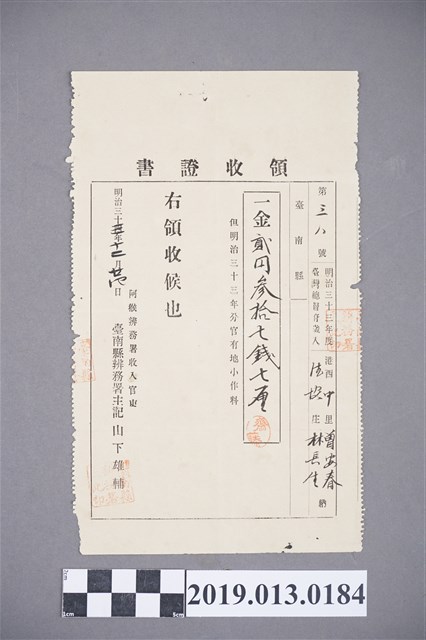 領收證書
第三八號
明治三十三年度 港西中里
臺灣總督府收入
庄 林長生 納
曾安春
臺南縣
一金貳円參拾七錢七厘
但明治三十三年分官有地小作料
右領收候也
明治三十三年十二月廿四日
阿緱辨務署收入官吏
臺南縣辨務署主記 山下雄輔
2019.013.0184
1cm
5cm